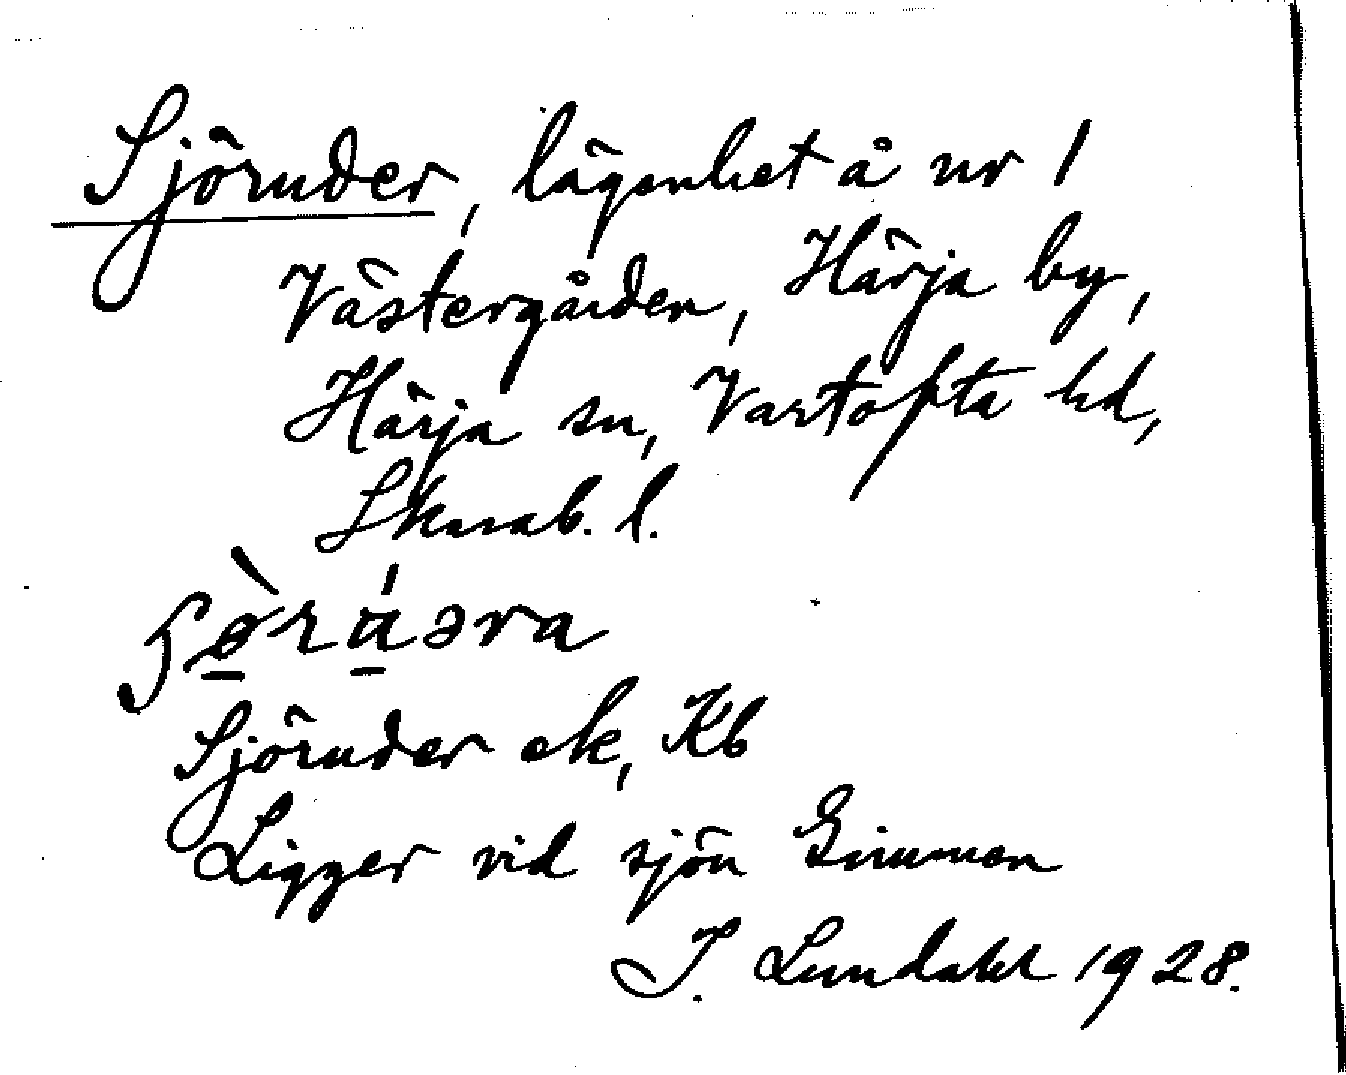 Sjöruder, lägenhet å nr 1
Västergården, Härja by,
Härja sn, Vartofta hd,
Skarab. l.
Sjöruder ek, Kb
Ligger vid sjön Gimmen
I. Lundahl 1928.